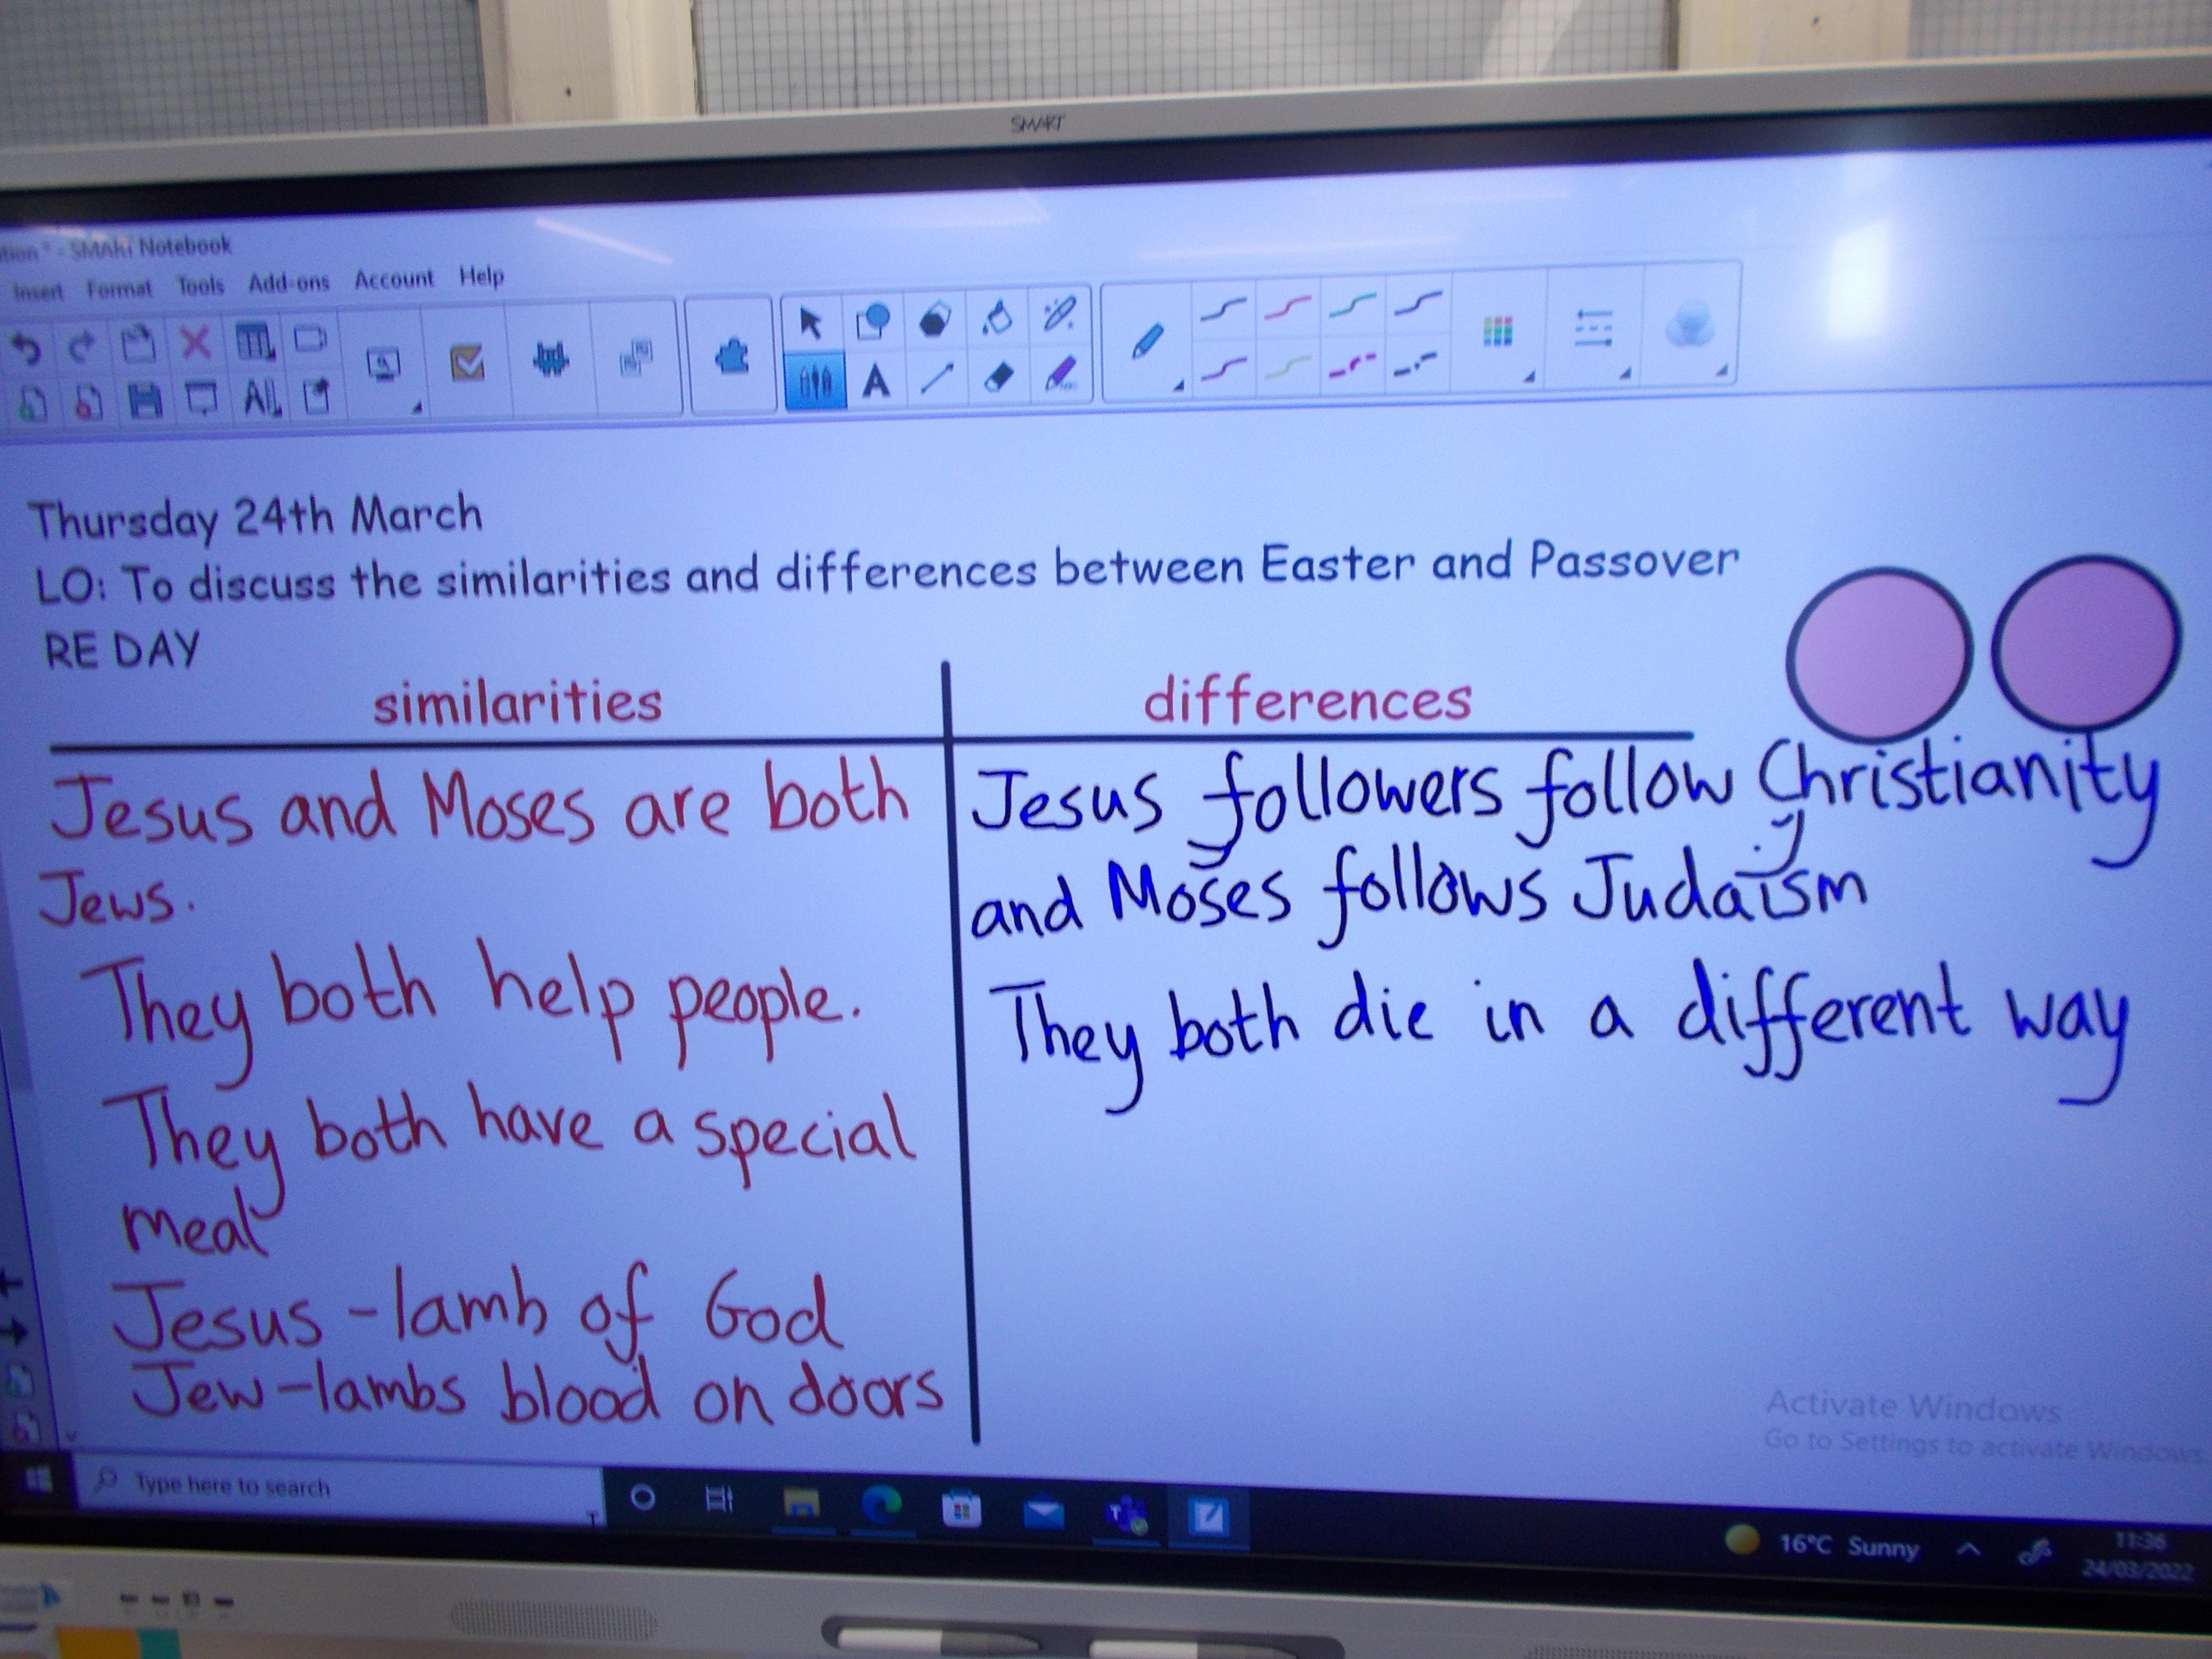 SMART
SMART Notebook
Insert Format Tools Add-ons Account Help
Thursday 24th March
LO: To discuss the similarities and differences between Easter and Passover
RE DAY
similarities
differences
Jesus and Moses are both
Jews.
They both help people.
They both have a special
meal
Jesus - lamb of God
Jew - lambs blood on doors
Jesus followers follow Christianity
and Moses follows Judaism
They both die in a different way
Activate Windows
Go to Settings to activate Windows.
Type here to search
16°C Sunny
11:36
24/03/2022